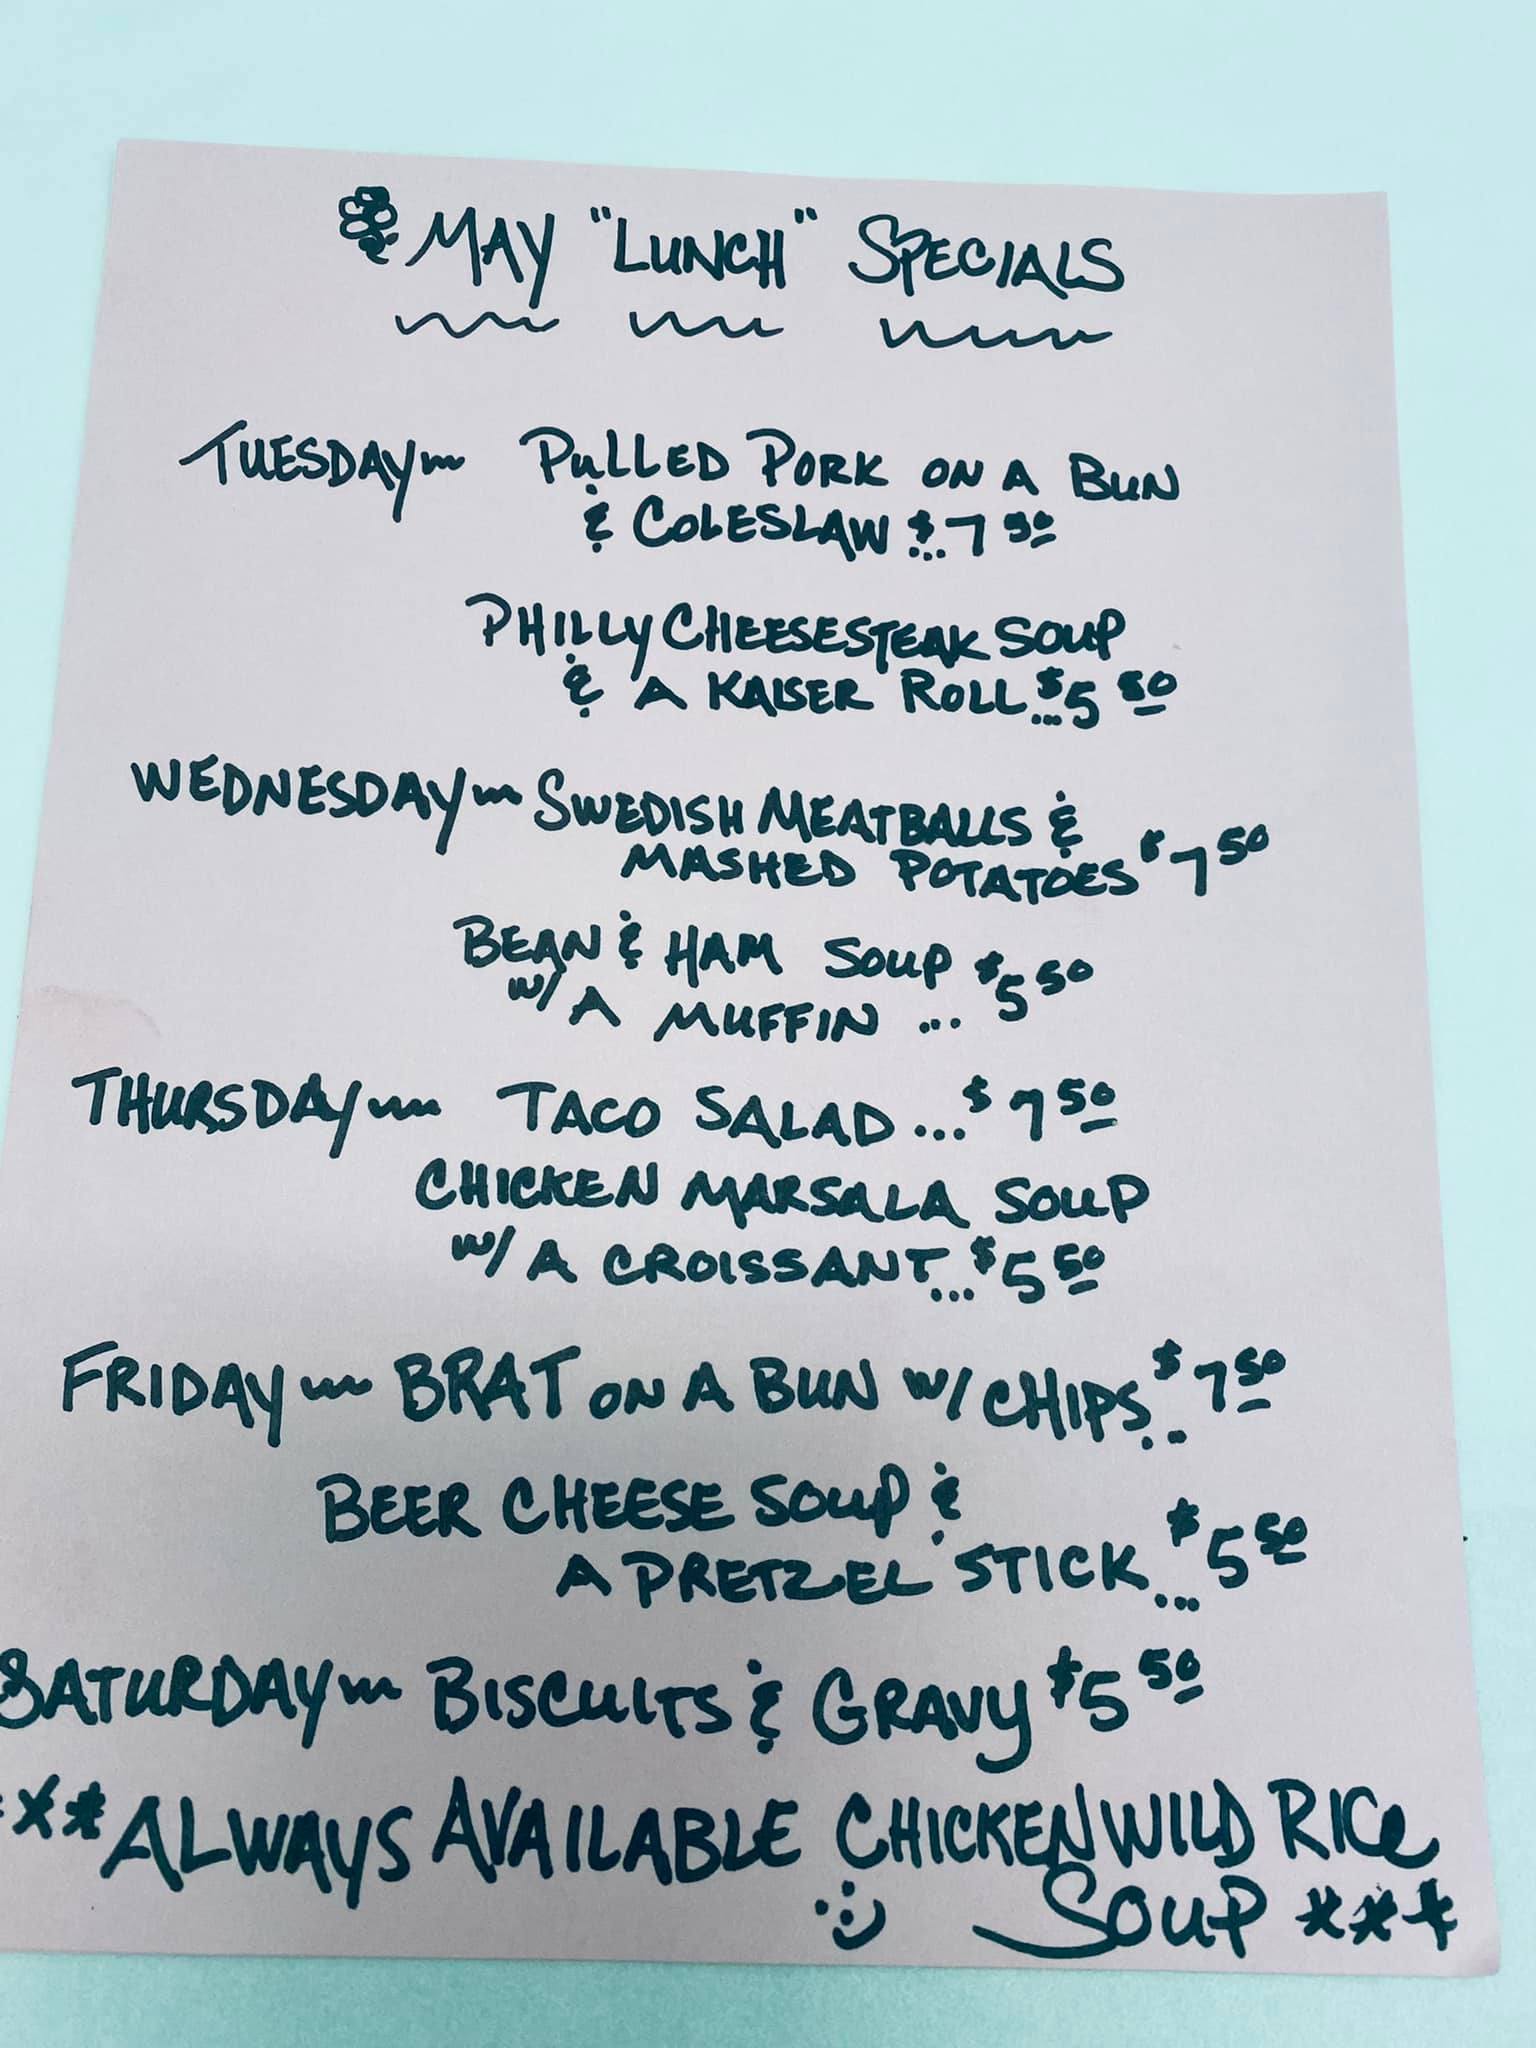 MAY "LUNCH" SPECIALS
TUESDAY~ PULLED PORK ON A BUN
& COLESLAW $...7 50
PHILLY CHEESESTEAK SOUP
& A KAISER ROLL...$5 50
WEDNESDAY~ SWEDISH MEATBALLS &
MASHED POTATOES $7 50
BEAN & HAM SOUP $5 50
W/ A MUFFIN ...
THURSDAY~ TACO SALAD...$7 50
CHICKEN MARSALA SOUP
W/ A CROISSANT...$5 50
FRIDAY~ BRAT ON A BUN W/ CHIPS...$7 50
BEER CHEESE SOUP &
A PRETZEL STICK...$5 50
SATURDAY~ BISCUITS & GRAVY $5 50
***ALWAYS AVAILABLE CHICKEN WILD RICE
SOUP ***